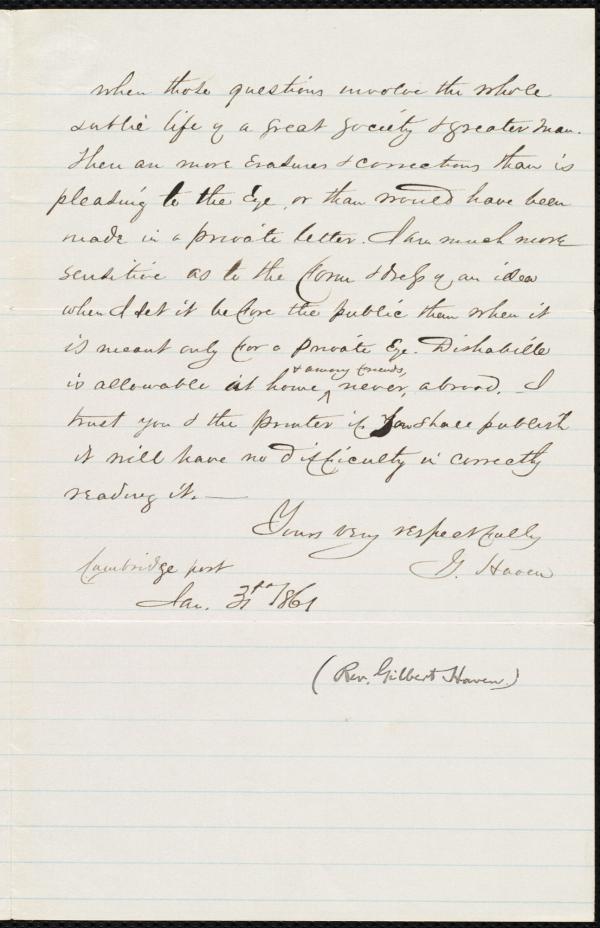 when those questions involve the whole
public life of a great society & greater man.
There are more erasures & corrections than is
pleasing to the Eye, or than would have been
made in a private letter. I am much more
sensitive as to the form & dress of an idea
when I set it before the public than when it
is meant only for a private Eye. Dishabille
& among friends,
is allowable at home ^ never, abroad. I
trust you & the printer if you shall publish
it will have no difficulty in correctly
reading it. —
Yours very respectfully
G. Haven
Cambridge port
Jan. 1861
(Rev. Gilbert Haven.)